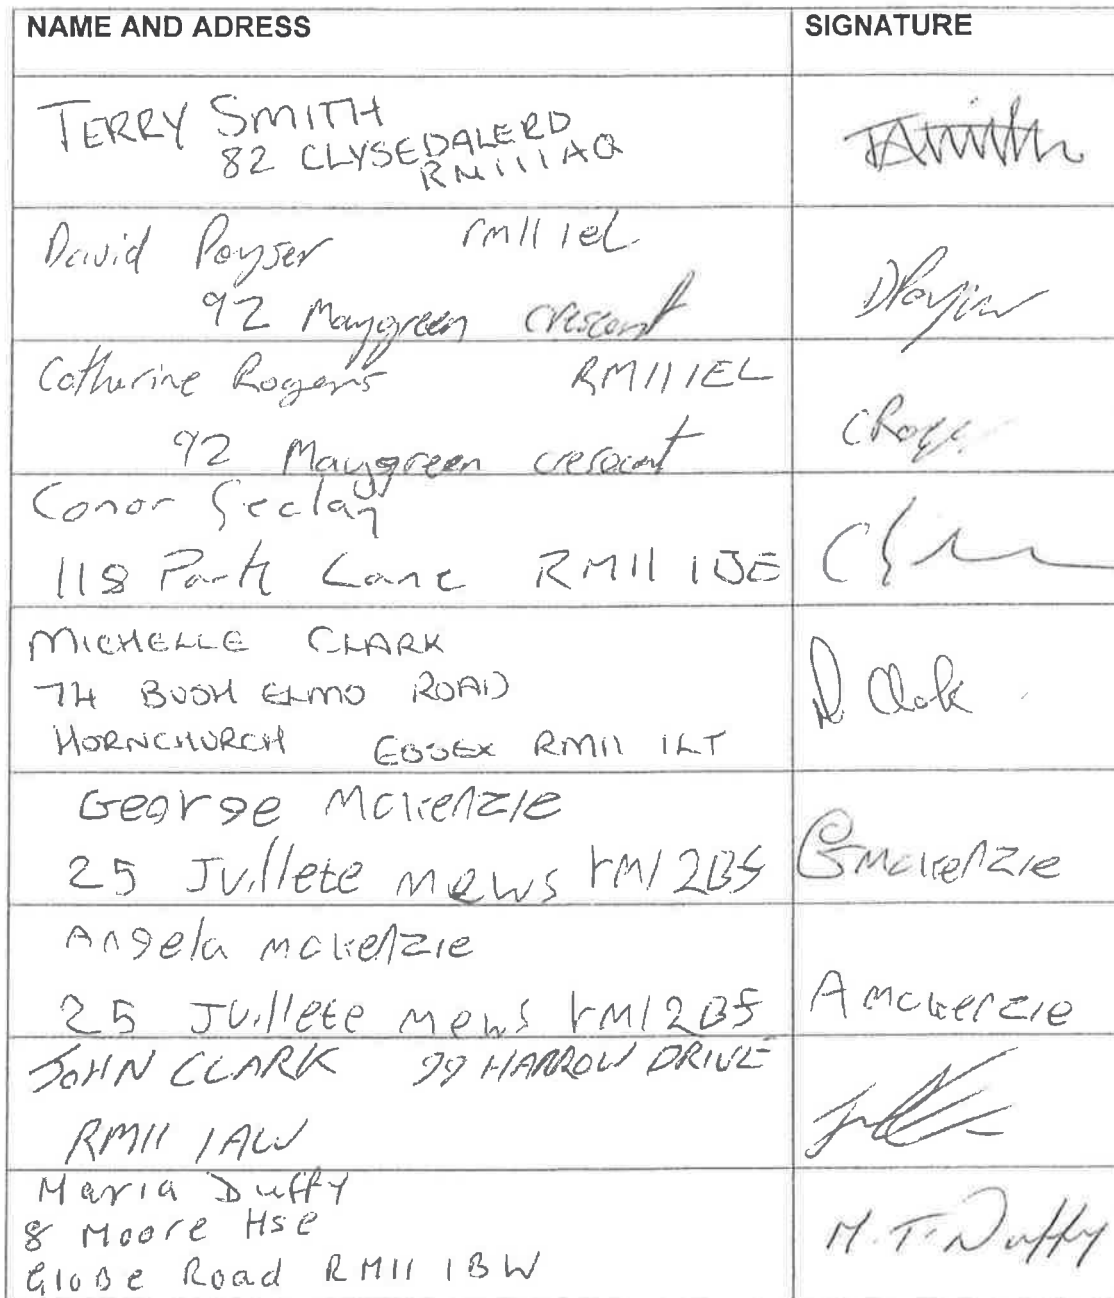 NAME AND ADRESS SIGNATURE
TERRY SMITH
82 CLYSEDALE RD
RM11 1AQ
David Poyser rm11 1eL
92 Maygreen crescent
DPoyser
Catherine Rogers RM11 1EL
92 Maygreen crescent
CRog
Conor
118 Park Lane RM11 1JE
MICHELLE CLARK
74 BUSH ELMS ROAD
HORNCHURCH ESSEX RM11 1LT
M Clark
George Mckenzie
25 Jullete mews rm1 2BS
Gmckenzie
Angela mckenzie
25 Jullete mews rm1 2BS
A mckenzie
JOHN CLARK 99 HARROW DRIVE
RM11 1AW
Maria Duffy
8 Moore Hse
Globe Road RM11 1BW
M.T. Duffy